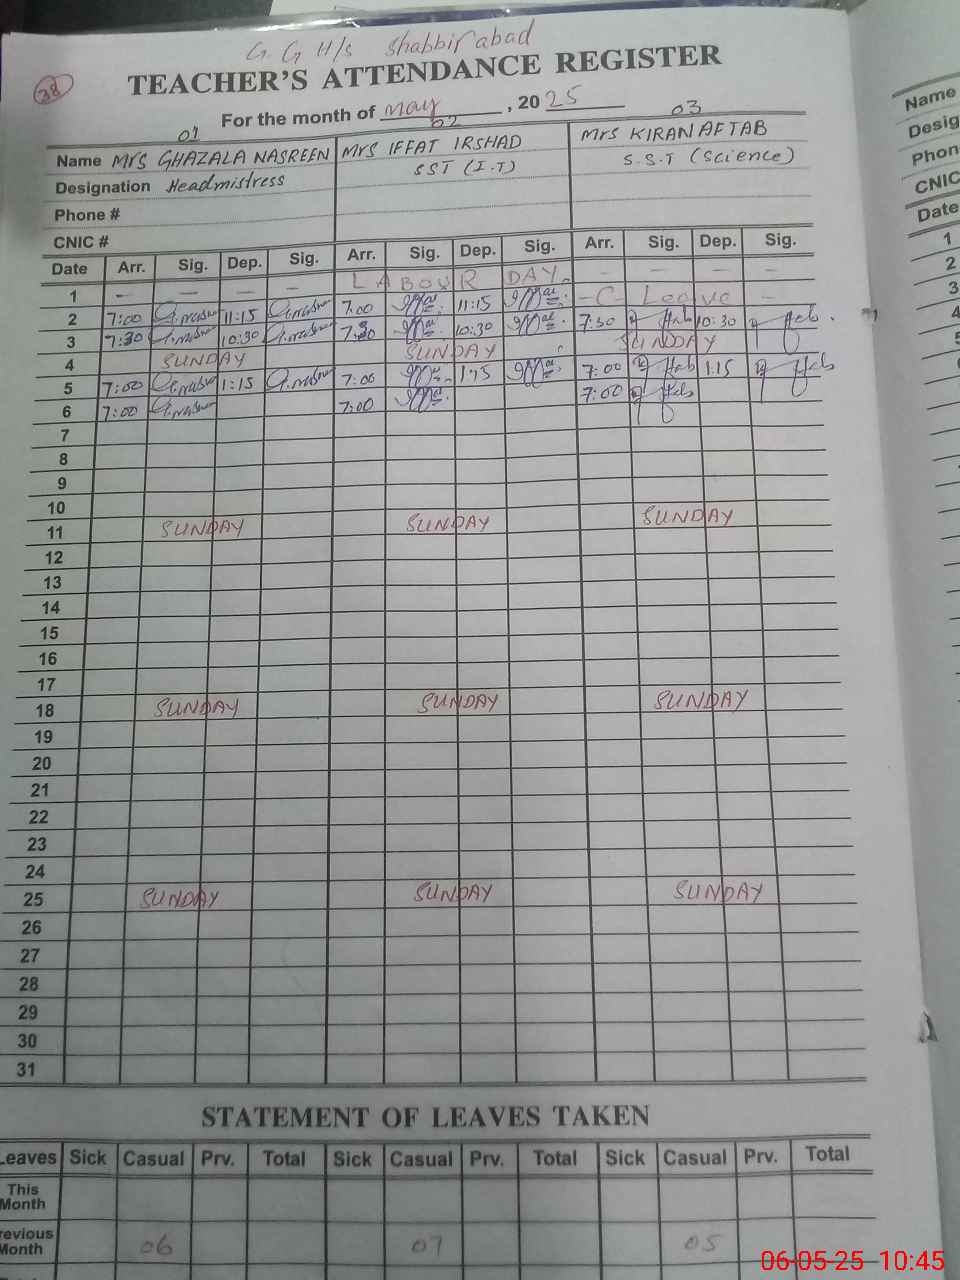 G. G H/s Shabbirabad
38
TEACHER'S ATTENDANCE REGISTER
For the month of May, 2025
01 02 03
Name Mrs GHAZALA NASREEN Mrs IFFAT IRSHAD Mrs KIRAN AFTAB
Designation Headmistress SST (I.T) S.S.T (Science)
Phone #
CNIC #
Date Arr. Sig. Dep. Sig. Arr. Sig. Dep. Sig. Arr. Sig. Dep. Sig.
1 – – – – LABOUR DAY – – – –
2 7:00 11:15 7:00 11:15 -C- Leave -
3 7:30 10:30 7:30 10:30 7:30 10:30
4 SUNDAY SUNDAY SUNDAY
5 7:00 1:15 7:00 1:15 7:00 1:15
6 7:00 7:00 7:00
7
8
9
10
11 SUNDAY SUNDAY SUNDAY
12
13
14
15
16
17
18 SUNDAY SUNDAY SUNDAY
19
20
21
22
23
24
25 SUNDAY SUNDAY SUNDAY
26
27
28
29
30
31
STATEMENT OF LEAVES TAKEN
Leaves Sick Casual Prv. Total Sick Casual Prv. Total Sick Casual Prv. Total
This Month
revious Month 06 07 05
Name
Desig
Phon
CNIC
Date
1
2
3
4
5
06-05-25 10:45